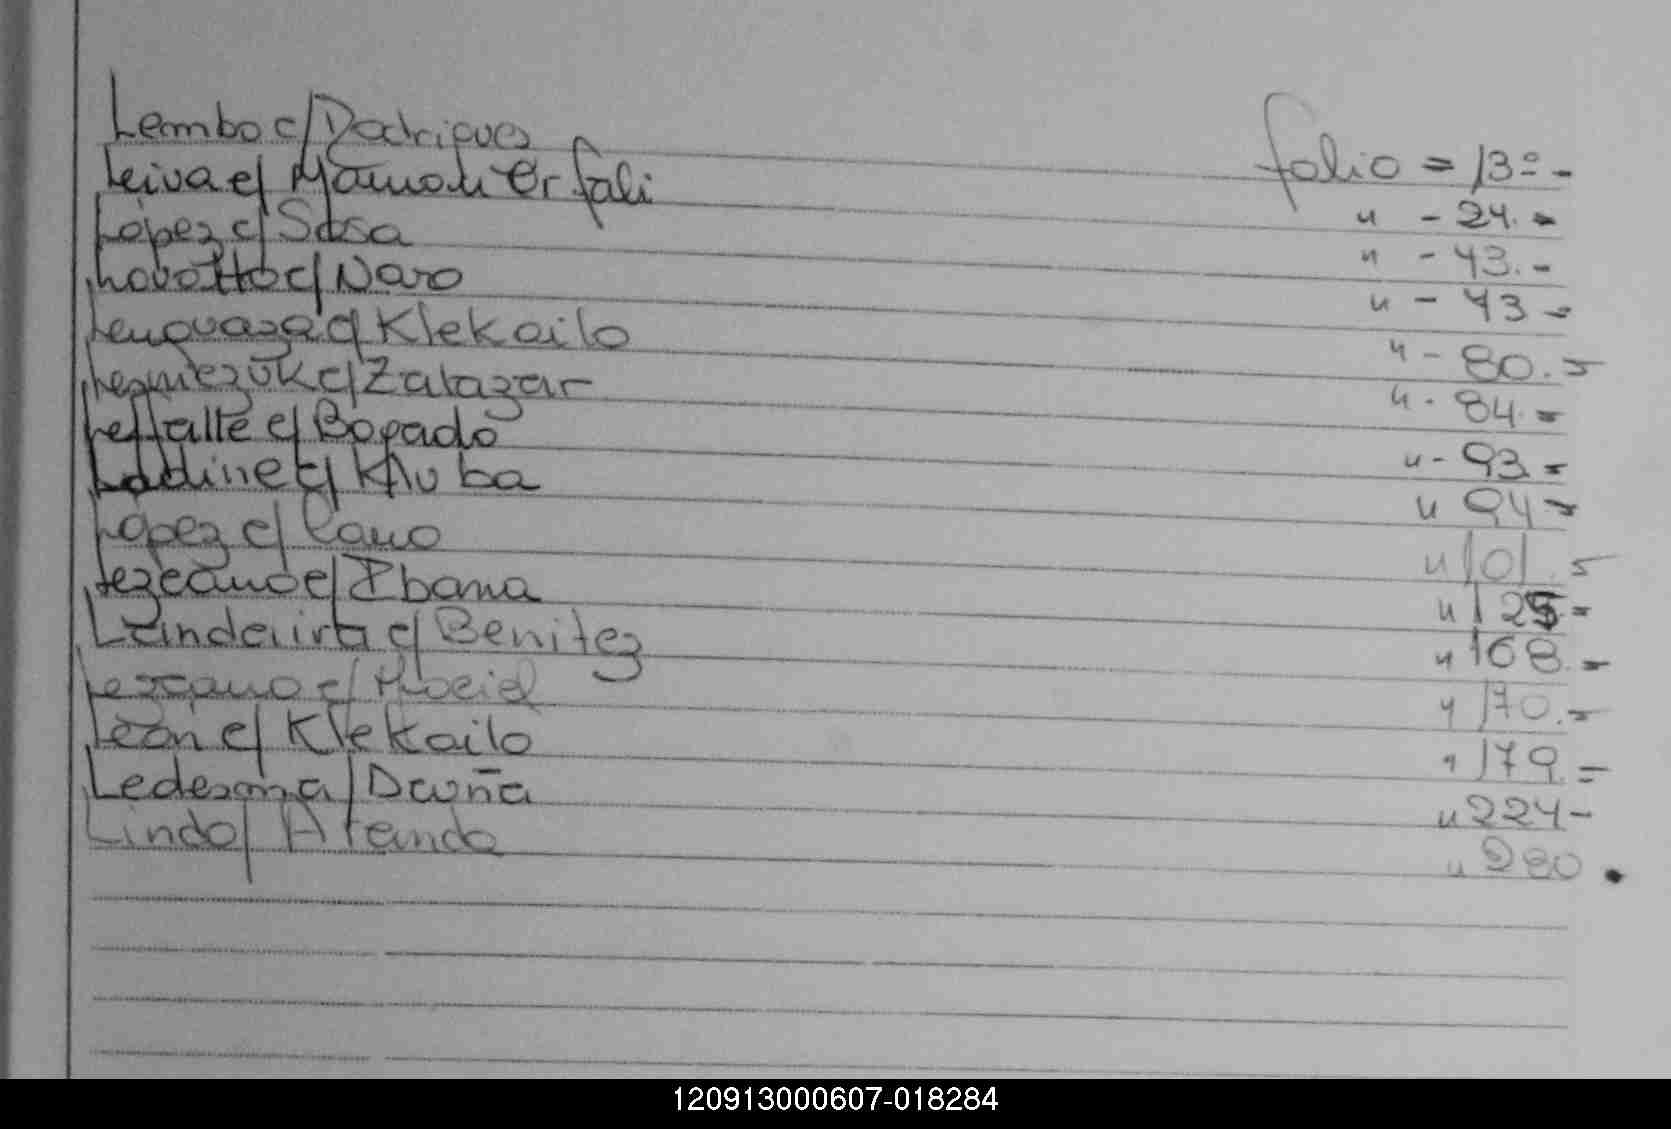 Lembo c/ Rodrigues folio = 13 = -
Leiva c/ Mamoli er fali " - 24. -
López c/ Sosa " - 43. -
Lovotto c/ Naro " - 43 -
c/ Klekailo " - 80. -
c/ Zalazar " - 84. -
Leffalle c/ Bogado " - 93 -
Ladine c/ Kluba " 94 -
López c/ Cano " 101. -
Lezcano c/ Ibarra " 125 -
c/ Benitez " 168. -
Lezcano c/ " 170. -
León c/ Klekailo " 179. -
Ledesma / " 224 -
Lindo / " 280 .
120913000607-018284